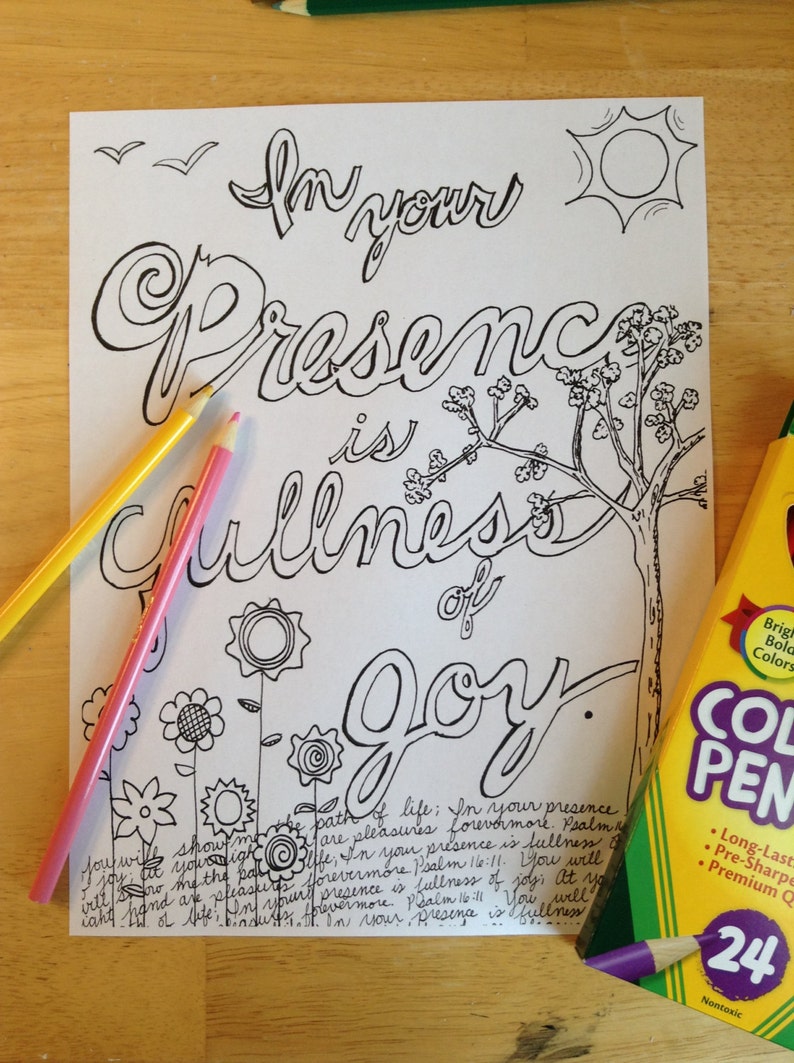 In your
Presence
is
fullness
of
Joy.
You will show me the path of life; In your presence
is fullness
joy; at your are pleasures forevermore. Psalm 16
life; In your presence is fullness
will show me the pa
hand are pleasures forevermore. Psalm 16:11. You will
of life; In your presence is fullness of joy; At yo
forevermore. Psalm 16:11 You will
In your Presence is fullness
Brigh
Bold
Colors
COL
PEN
• Long-Last
• Pre-Sharpe
• Premium Q
24
Nontoxic